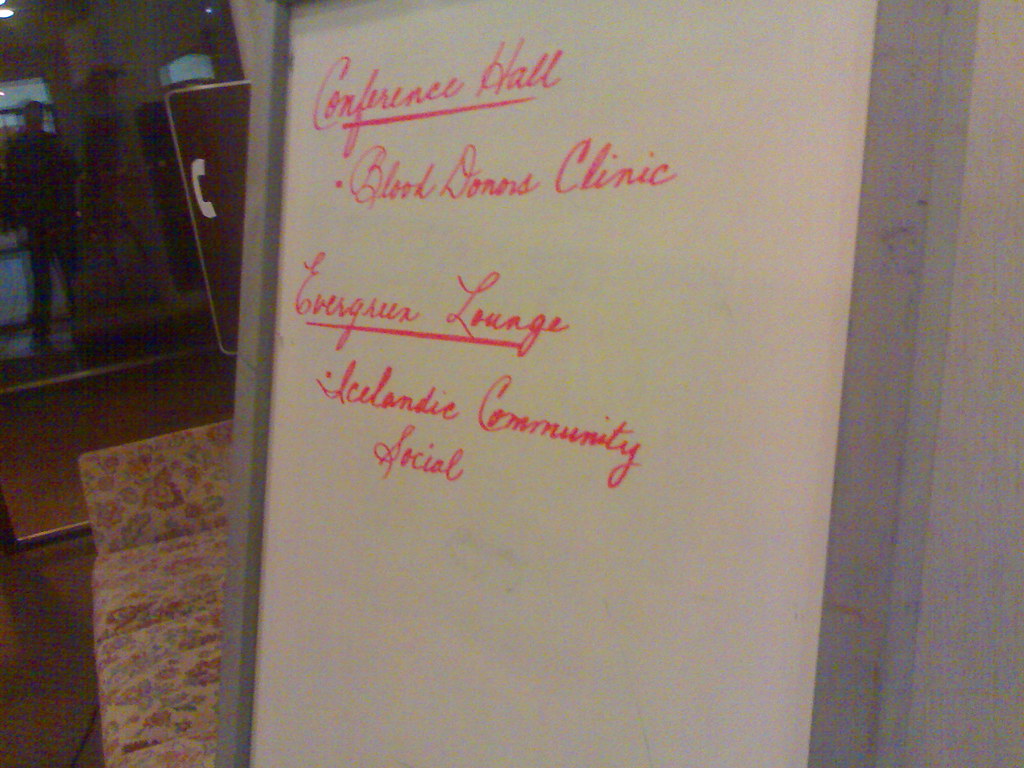 Conference Hall
• Blood Donors Clinic
Evergreen Lounge
• Icelandic Community
Social